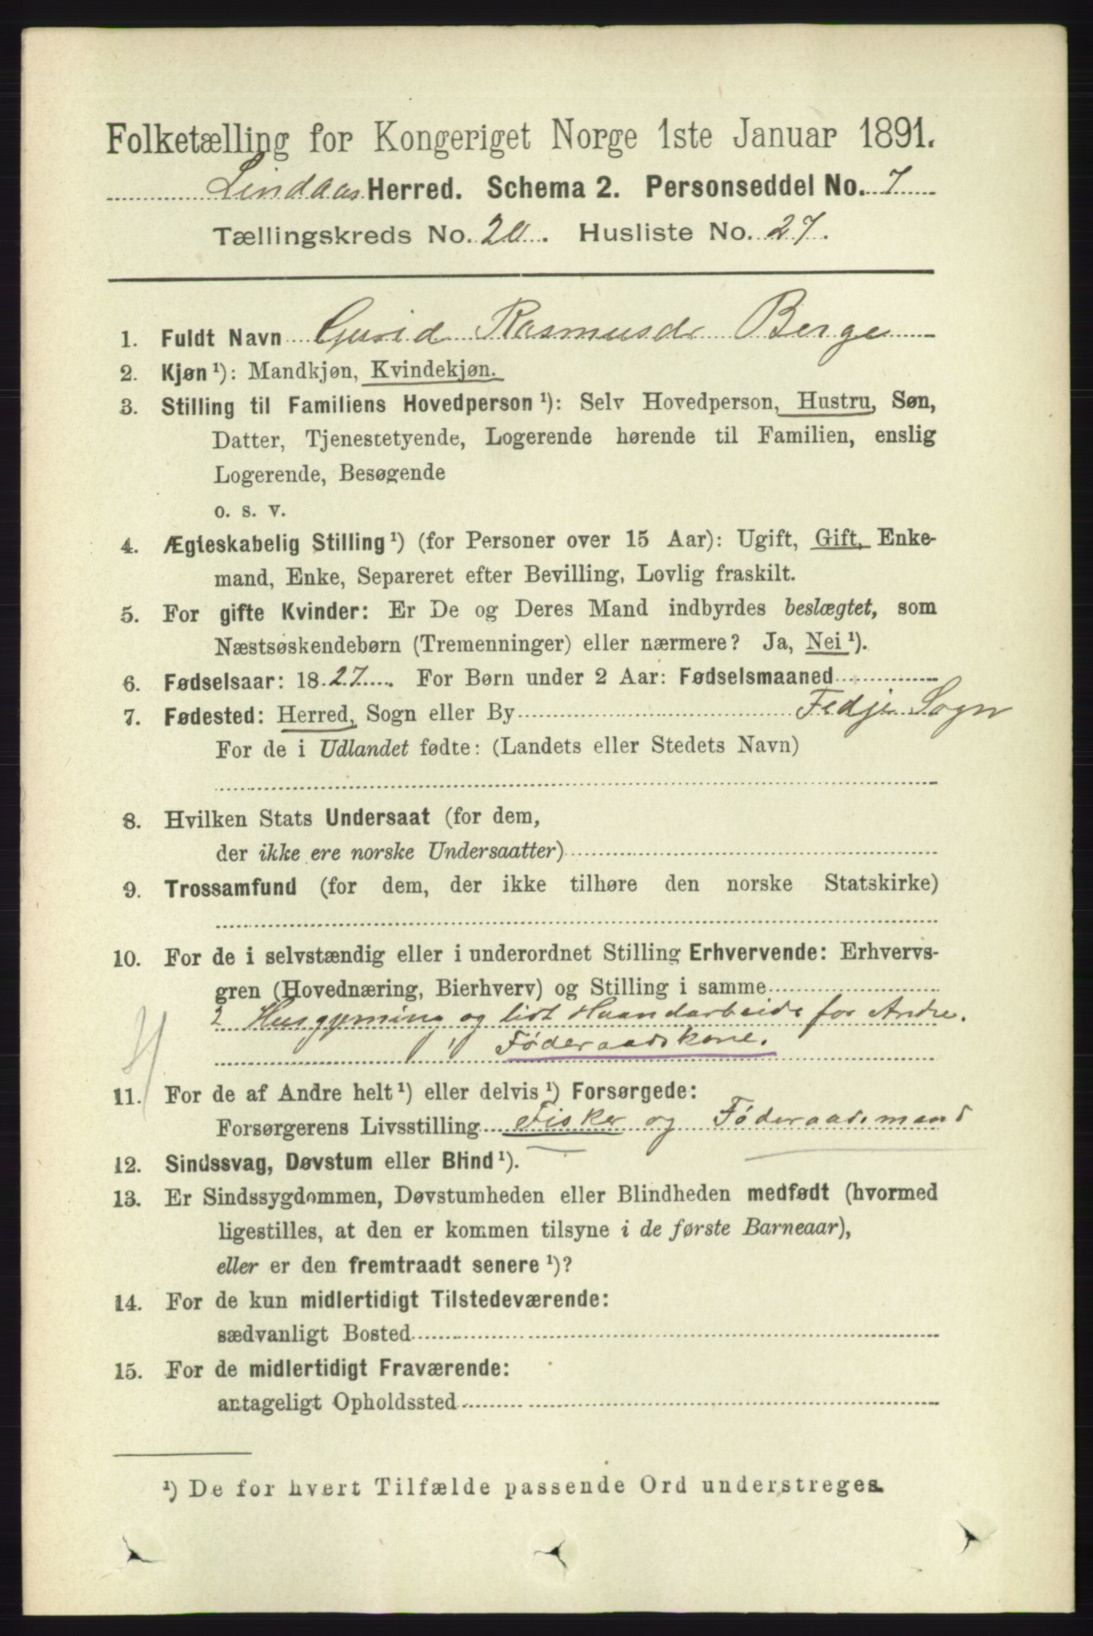 Folketælling for Kongeriget Norge 1ste Januar 1891.
Lindaas Herred. Schema 2. Personseddel No. 7
Tællingskreds No. 20. Husliste No. 27.
1. Fuldt Navn Gurid Rasmusdr Berge
2. Kjøn ¹): Mandkjøn, Kvindekjøn.
3. Stilling til Familiens Hovedperson ¹): Selv Hovedperson, Hustru, Søn,
Datter, Tjenestetyende, Logerende hørende til Familien, enslig
Logerende, Besøgende
o. s. v.
4. Ægteskabelig Stilling ¹) (for Personer over 15 Aar): Ugift, Gift, Enke-
mand, Enke, Separeret efter Bevilling, Lovlig fraskilt.
5. For gifte Kvinder: Er De og Deres Mand indbyrdes beslægtet, som
Næstsøskendebørn (Tremenninger) eller nærmere? Ja, Nei ¹).
6. Fødselsaar: 1827. For Børn under 2 Aar: Fødselsmaaned
7. Fødested: Herred, Sogn eller By Fedje Sogn
For de i Udlandet fødte: (Landets eller Stedets Navn)
8. Hvilken Stats Undersaat (for dem,
der ikke ere norske Undersaatter)
9. Trossamfund (for dem, der ikke tilhøre den norske Statskirke)
10. For de i selvstændig eller i underordnet Stilling Erhvervende: Erhvervs-
gren (Hovednæring, Bierhverv) og Stilling i samme
2 Husgjerning og lidt Haandarbeide for Andre.
Føderaadskone.
11. For de af Andre helt ¹) eller delvis ¹) Forsørgede:
Forsørgerens Livsstilling Fisker og Føderaadsmand
12. Sindssvag, Døvstum eller Blind ¹).
13. Er Sindssygdommen, Døvstumheden eller Blindheden medfødt (hvormed
ligestilles, at den er kommen tilsyne i de første Barneaar),
eller er den fremtraadt senere ¹)?
14. For de kun midlertidigt Tilstedeværende:
sædvanligt Bosted
15. For de midlertidigt Fraværende:
antageligt Opholdssted
¹) De for hvert Tilfælde passende Ord understreges.